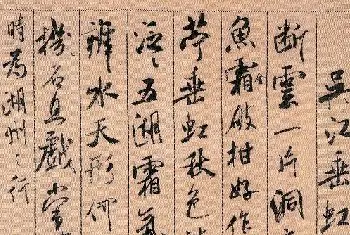 吳江垂虹
斷雲一片洞
魚霜金破柑好作
苧垂虹秋色
泛〻五湖霜氣
辨水天形何
機石且戲常
時為湖州之行